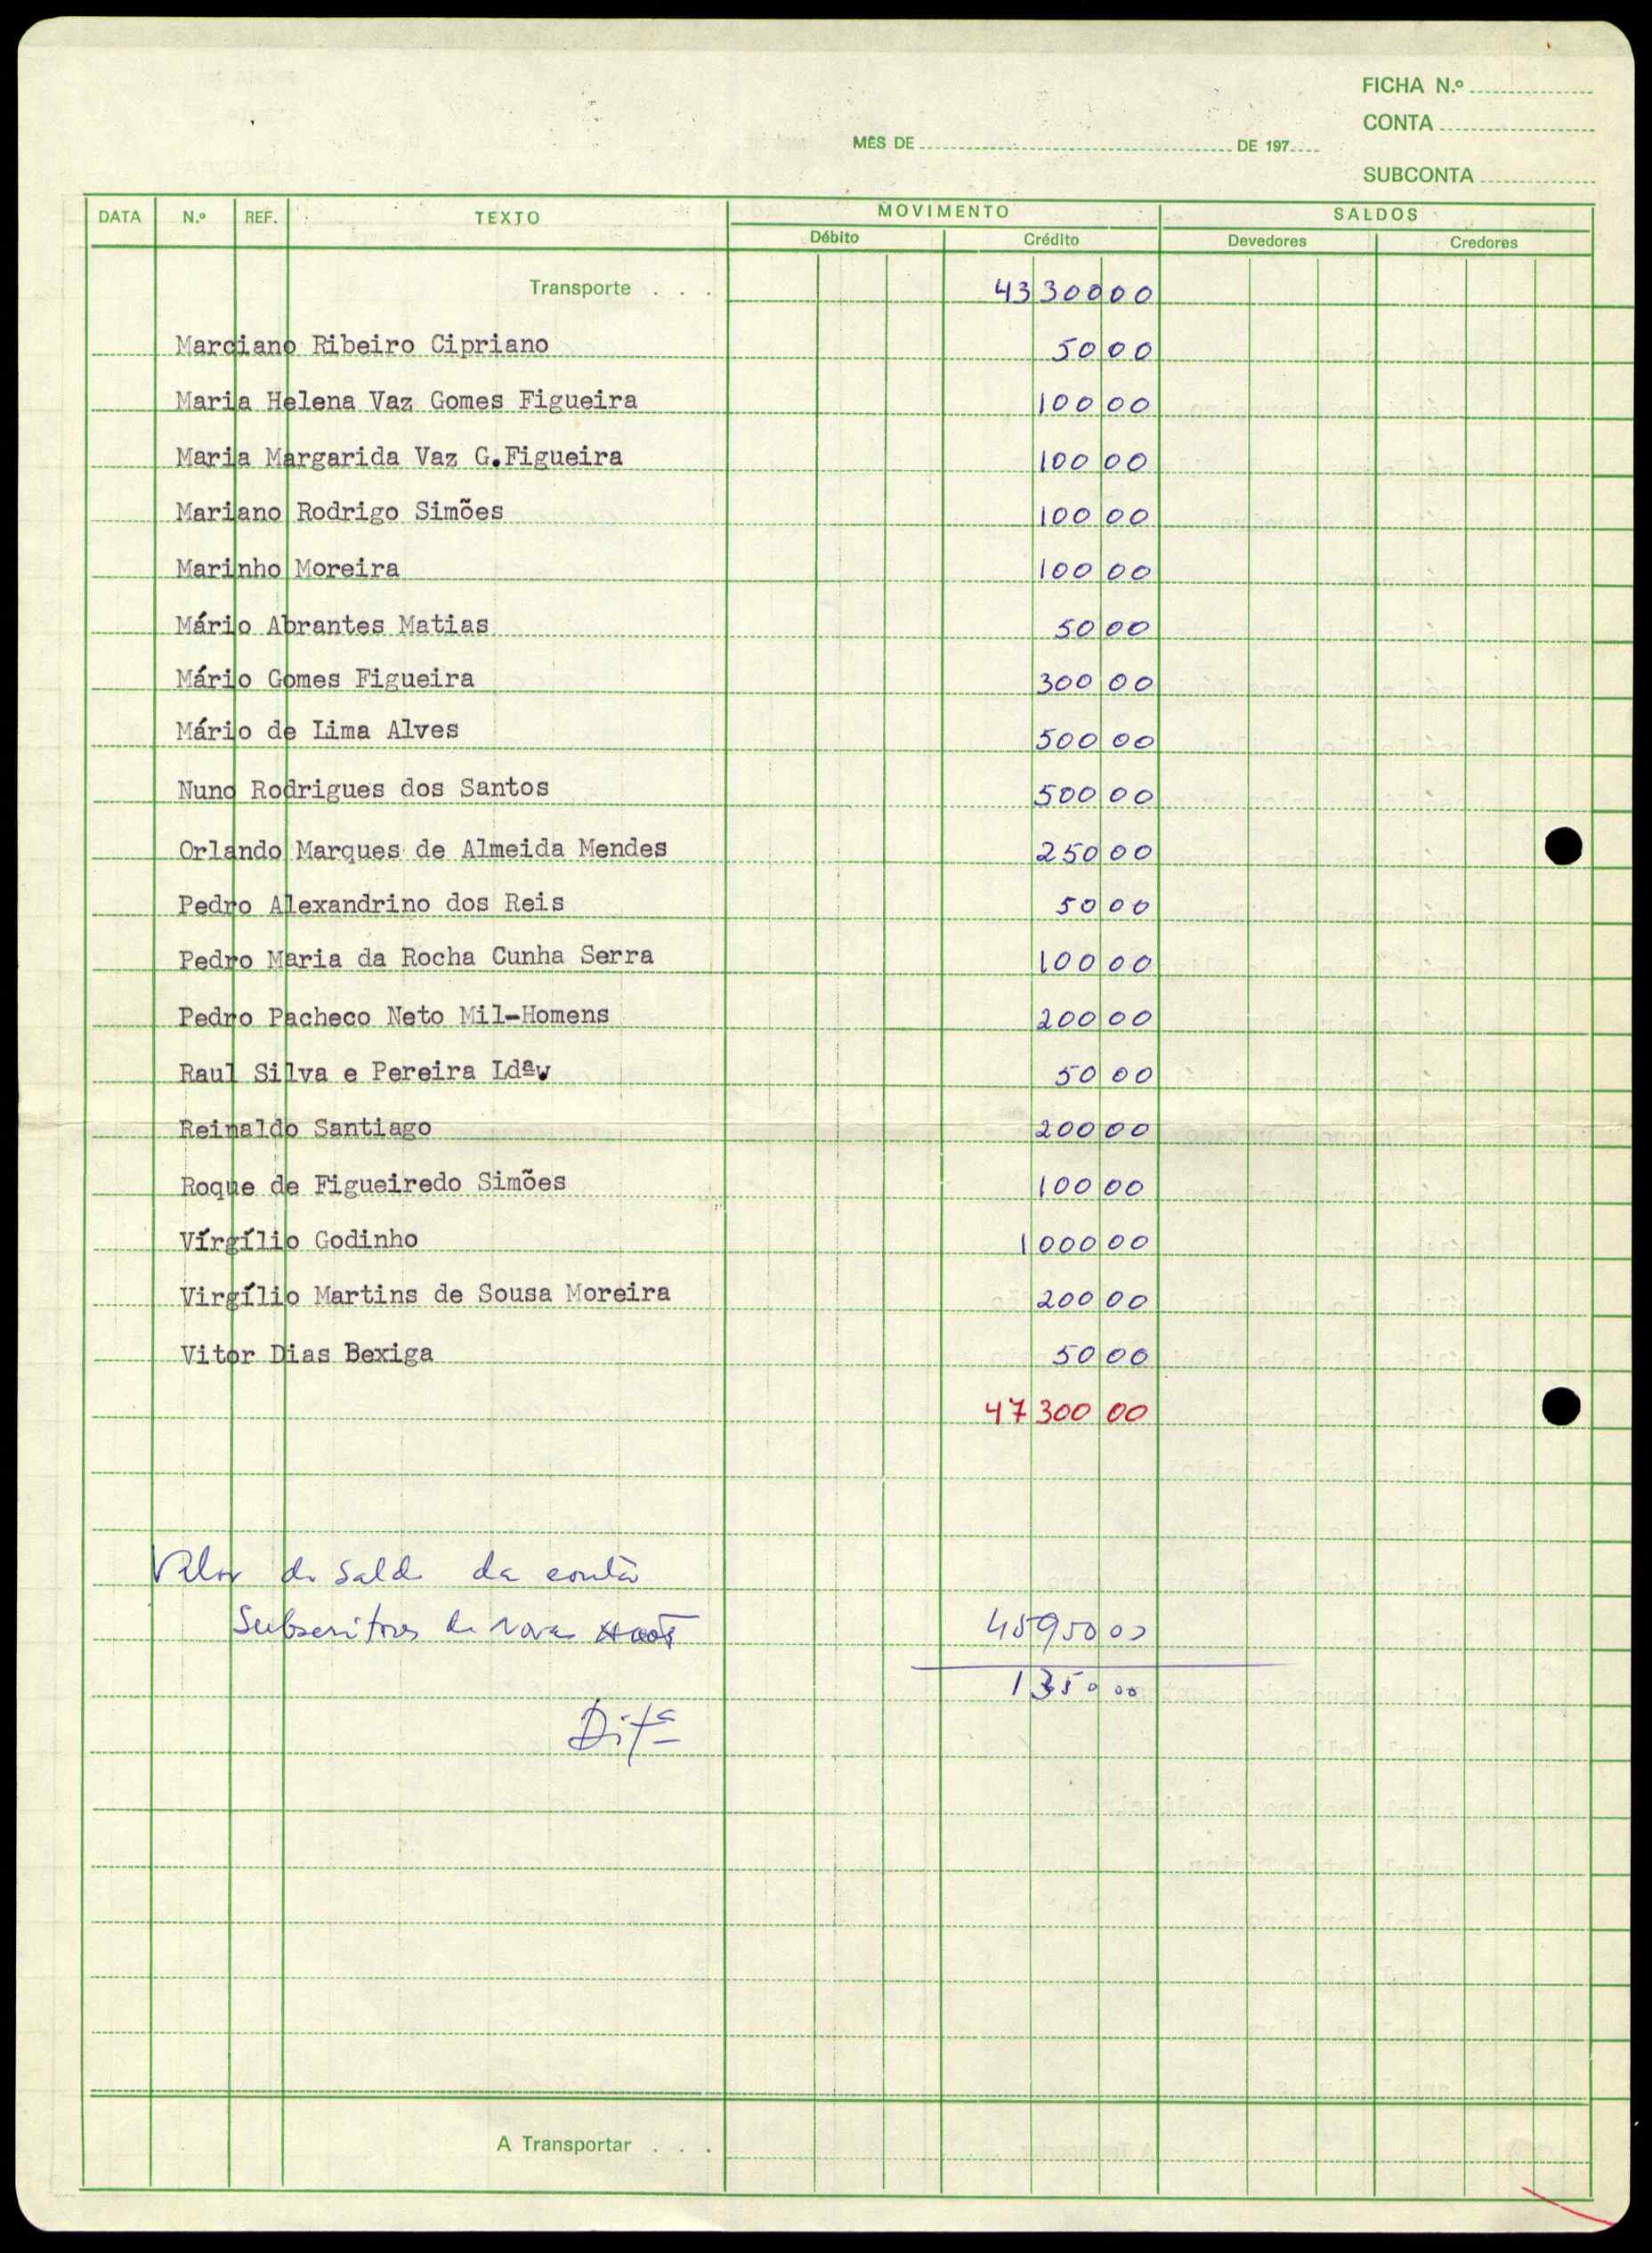 FICHA N.º
CONTA
MÊS DE DE 197
SUBCONTA
DATA N.º REF. TEXTO MOVIMENTO SALDOS
Débito Crédito Devedores Credores
Transporte . . . 43 300 00
Marciano Ribeiro Cipriano 50 00
Maria Helena Vaz Gomes Figueira 100 00
Maria Margarida Vaz G.Figueira 100 00
Mariano Rodrigo Simões 100 00
Marinho Moreira 100 00
Mário Abrantes Matias 50 00
Mário Gomes Figueira 300 00
Mário de Lima Alves 500 00
Nuno Rodrigues dos Santos 500 00
Orlando Marques de Almeida Mendes 250 00
Pedro Alexandrino dos Reis 50 00
Pedro Maria da Rocha Cunha Serra 100 00
Pedro Pacheco Neto Mil-Homens 200 00
Raul Silva e Pereira Ldªw 50 00
Reinaldo Santiago 200 00
Roque de Figueiredo Simões 100 00
Vírgílio Godinho 1 000 00
Virgílio Martins de Sousa Moreira 200 00
Vitor Dias Bexiga 50 00
47 300 00
Valor do saldo da conta
Subscritores de 45950 00
1350 00
Difª
A Transportar . . .